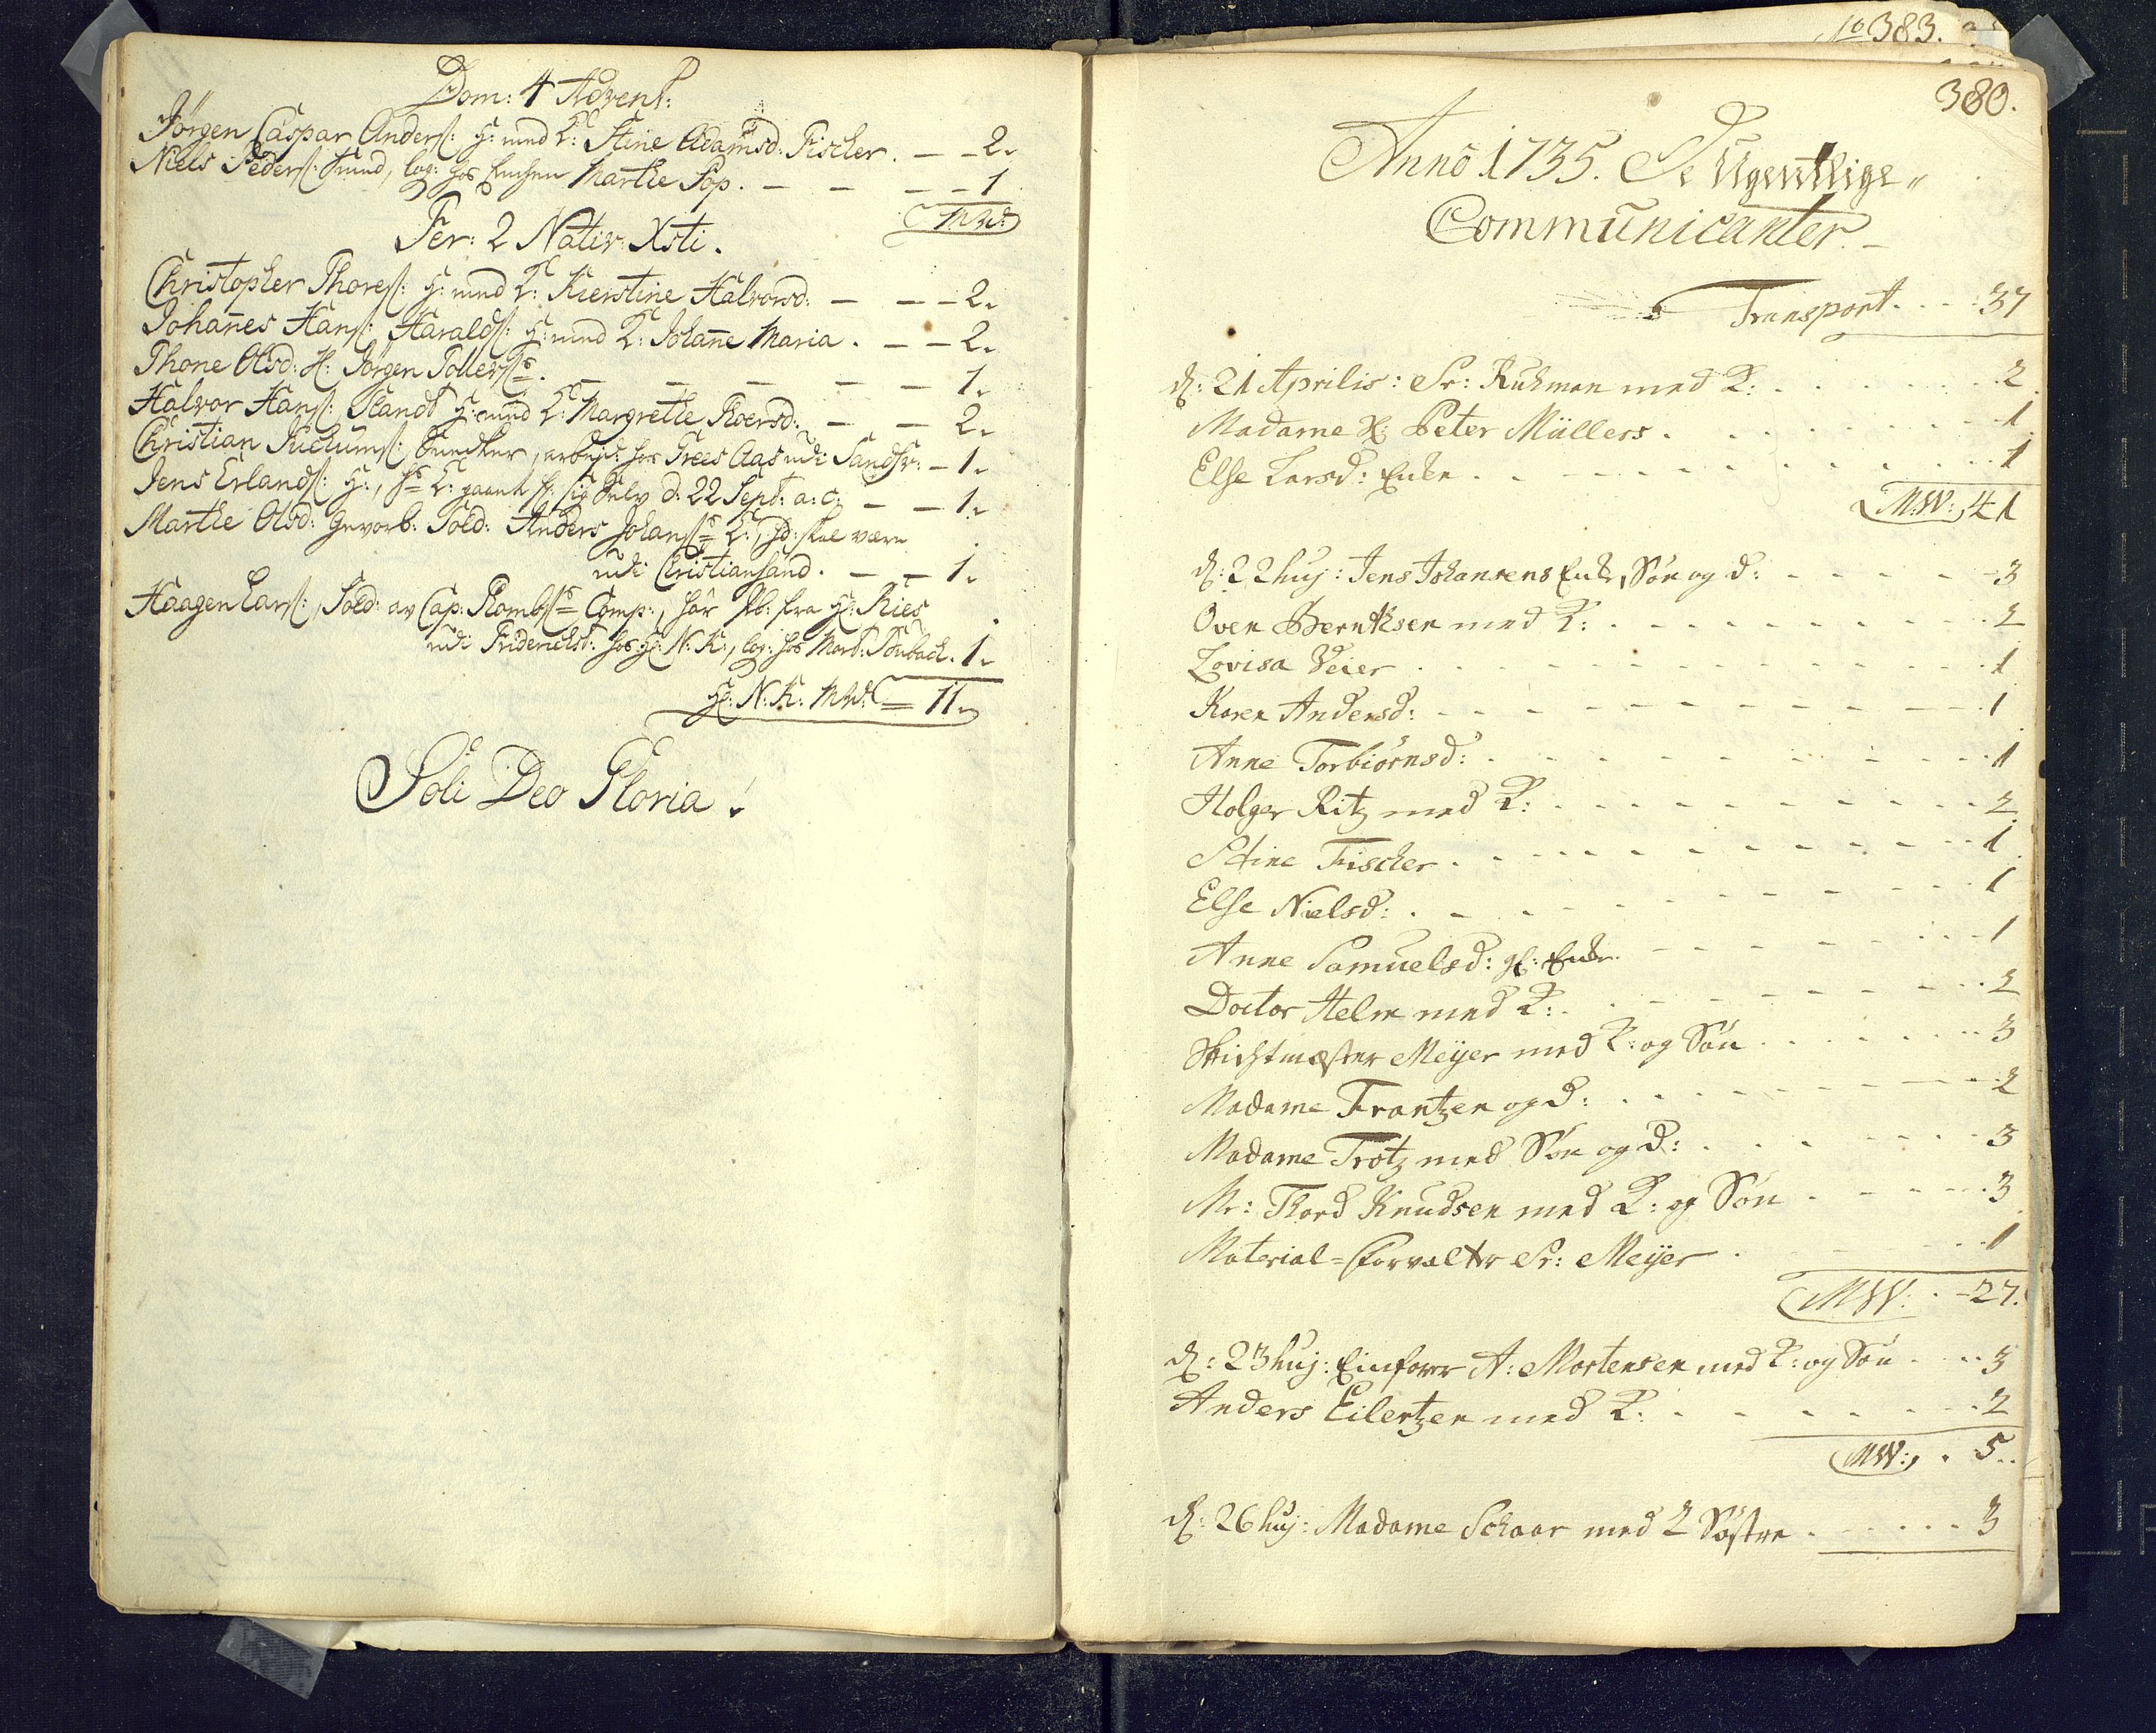 Dom: 4 Advent:
Jörgen Caspar Anders: H: med K: Stine Adamsd: Fischer. — – 2.
Niels Peders: Lund, log: hos Enchen Marthe Pop. – – – – 1
MW:
Fer: 2 Nativ: Xsti.
Christopher Thores: H: med K: Kierstine Halvorsd: – – – 2.
Johanes Hans: Harolds: H: med K: Johane Maria. – – 2.
Thone Olsd: H: Jörgen Tollers. – – – – – 1.
Halvor Hans: Standt H: med K: Margrethe Roersd: – – 2.
Christian Jochums: Snedker, arbejd: hos Trees Aas udi Sandsv: – 1.
Jens Erlands: H:, K: gaaet f: sig selv d: 22 Sept: a: c: – – 1.
Marthe Olsd: Gevorb: Sold: Anders Johans K:, hd: skal være
udi Christiansand. – – 1.
Haagen Lars:, Sold: av Cap: Rombs Comp:, fra H: Ries
udi Friderichst: hos H: N: K:, log: hos Mort: 1.
H: N: K: MW: = 11.
Soli Deo Gloria!
10 383.
380.
Anno 1735. De Ugentlige
Communicanter.
Transport. . . . 37
d: 21 Aprilis: Sr: Ruhman med K: . . . . 2
Madame H: Peter Müllers . . . . 1
Else Larsd: Enke . . . . 1
MW: 41
d: 22 huj: Jens Johansens Enke, Søn og d: . . . . 3
Oven Berntsen med K: . . . . 2
Lovisa Veier . . . . 1
Karen Andersd: . . . . 1
Anne Torbiörnsd: . . . . 1
Holger Ritz med K: . . . . 2
Stine Fischer . . . . 1
Else Nielsd: . . . . 1
Anne Samuelsd: gl: Enke . . . . 1
Doctor Helm med K: . . . . 2
Meÿer med K: og Søn . . . . 3
Madame Frantzen og d: . . . . 2
Madame Trotz med Søn og d: . . . . 3
Mr: Thord Knudsen med K: og Søn . . . . 3
Material=Forvalter Sr: Meÿer . . . . 1
MW: . – 27.
d: 23 huj: A: Mortensen med K: og Søn . . . . 3
Anders Eilertzen med K: . . . . 2
MW: . 5..
d: 26 huj: Madame Schaar med 2 Søstre . . . . 3